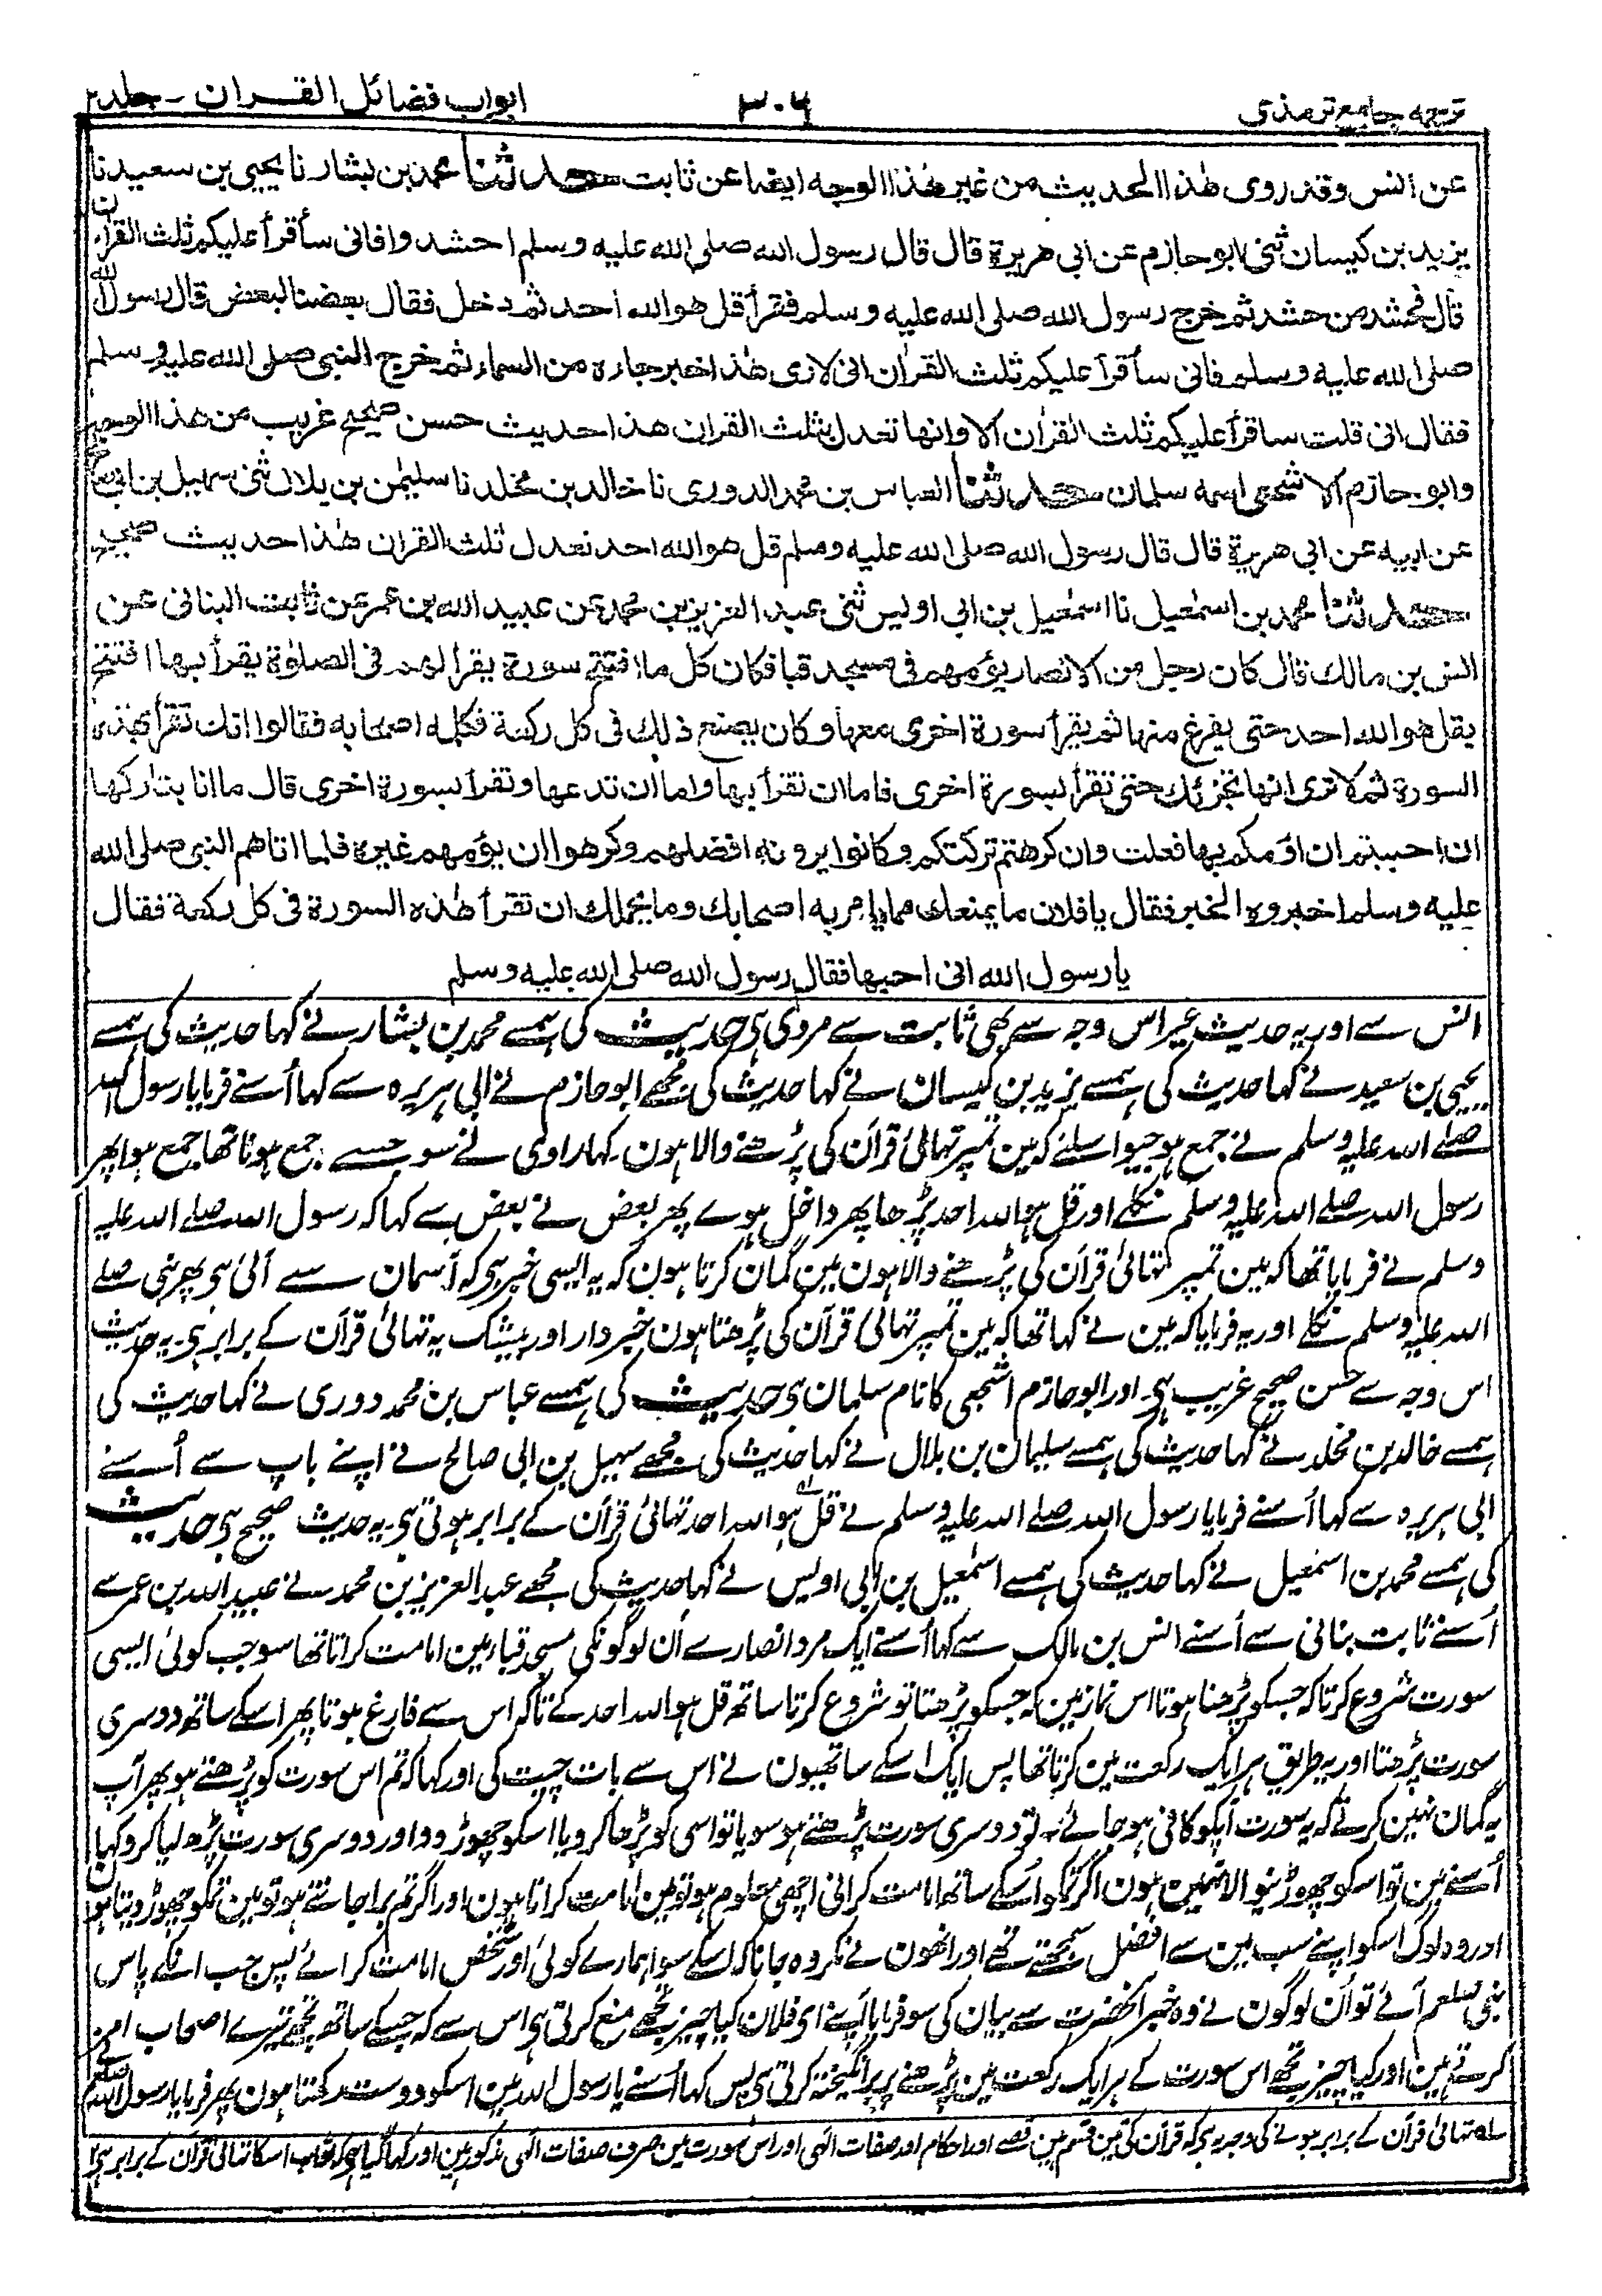 ترجمہ جامع ترمذی
۳۰۶
ابواب فضائل القران - جلد ۲
عن انس وقد روی هٰذا الحدیث من غیر هٰذا الوجه ایضا عن ثابت حدثنا محمد بن بشار نا یحیی بن سعید نا
یزید بن کیسان ثنی ابو حازم عن ابی هریرة قال قال رسول الله صلی الله علیه وسلم احشدوا فانی سأقرأ علیکم ثلث القران
قال فحشد من حشد ثم خرج رسول الله صلی الله علیه وسلم فقرأ قل هو الله احد ثم دخل فقال بعضنا لبعض قال رسول الله
صلی الله علیه وسلم فانی سأقرأ علیکم ثلث القران انی لاری هٰذا خبر جاءه من السماء ثم خرج النبی صلی الله علیه وسلم
فقال انی قلت ساقرأ علیکم ثلث القراٰن الا وانها تعدل بثلث القران هذا حدیث حسن صحیح غریب من هذا الوجه
وابو حازم الاشجعی اسمه سلمان حدثنا العباس بن محمد الدوری نا خالد بن مخلد نا سلیمٰن بن بلال ثنی سهیل بن ابی صالح
عن ابیه عن ابی هریرة قال قال رسول الله صلی الله علیه وسلم قل هو الله احد تعدل ثلث القران هٰذا حدیث صحیح
حدثنا محمد بن اسمٰعیل نا اسمٰعیل بن ابی اویس ثنی عبد العزیز بن محمد عن عبید الله بن عمر عن ثابت البنانی عن
انس بن مالك قال کان رجل من الانصار یؤمهم فی مسجد قبا فکان کل ما افتتح سورة یقرأ لهم فی الصلوٰة یقرأ بها افتتح
بقل هو الله احد حتی یفرغ منها ثم یقرأ سورة اخری معها وکان یصنع ذلك فی کل رکعة فکلمه اصحابه فقالوا انك تقرأ بهذه
السورة ثم لا تری انها تجزئك حتی تقرأ بسورة اخری فاما ان تقرأ بها واما ان تدعها وتقرأ بسورة اخری قال ما انا بتارکها
ان احببتم ان اؤمکم بها فعلت وان کرهتم ترکتکم وکانوا یرونه افضلهم وکرهوا ان یؤمهم غیره فلما اتاهم النبی صلی الله
علیه وسلم اخبروه الخبر فقال یا فلان ما یمنعك مما یامر به اصحابك وما یحملك ان تقرأ هٰذه السورة فی کل رکعة فقال
یا رسول الله انی احبها فقال رسول الله صلی الله علیه وسلم
انس سے اور یہ حدیث غیر اس وجہ سے بھی ثابت سے مروی ہی حدیث کی ہمسے محمد بن بشار نے کہا حدیث کی ہمسے
یحیی بن سعید نے کہا حدیث کی ہمسے یزید بن کیسان نے کہا حدیث کی مجھے ابو حازم نے ابی ہریرہ سے کہا اُسنے فرمایا رسول اللہ
صلے اللہ علیہ وسلم نے جمع ہو جیو اسلئے کہ مین تمپر تہائی قرآن کی پڑھنے والا ہون کہا راوی نے سو جسے جمع ہونا تھا جمع ہوا پھر
رسول اللہ صلے اللہ علیہ وسلم نکلے اور قل ہو اللہ احد پڑھا پھر داخل ہوے پھر بعض نے بعض سے کہا کہ رسول اللہ صلے اللہ علیہ
وسلم نے فرمایا تھا کہ مین تمپر تہائی قرآن کی پڑھنے والا ہون مین گمان کرتا ہون کہ یہ ایسی خبر ہی کہ آسمان سے آئی ہی پھر نبی صلے
اللہ علیہ وسلم نکلے اور یہ فرمایا کہ مین نے کہا تھا کہ مین تمپر تہائی قرآن کی پڑھتا ہون خبردار اور بیشک یہ تہائی قرآن کے برابر ہی یہ حدیث
اس وجہ سے حسن صحیح غریب ہی اور ابو حازم اشجعی کا نام سلمان ہی حدیث کی ہمسے عباس بن محمد دوری نے کہا حدیث کی
ہمسے خالد بن مخلد نے کہا حدیث کی ہمسے سلیمان بن بلال نے کہا حدیث کی مجھے سہیل بن ابی صالح نے اپنے باپ سے اُسنے
ابی ہریرہ سے کہا اُسنے فرمایا رسول اللہ صلے اللہ علیہ وسلم نے قل ہو اللہ احد تہائی قرآن کے برابر ہوتی ہی یہ حدیث صحیح ہی حدیث
کی ہمسے محمد بن اسمٰعیل نے کہا حدیث کی ہمسے اسمٰعیل بن ابی اویس نے کہا حدیث کی مجھے عبد العزیز بن محمد نے عبید اللہ بن عمر سے
اُسنے ثابت بنانی سے اُسنے انس بن مالک سے کہا اُسنے ایک مرد انصار سے اُن لوگونکی مسجد قبا مین امامت کراتا تھا سو جب کوئی ایسی
سورت شروع کرتا کہ جسکو پڑھنا ہوتا اس نماز مین کہ جسکو پڑھتا تو شروع کرتا ساتھ قل ہو اللہ احد کے تاکہ اس سے فارغ ہوتا پھر اسکے ساتھ دوسری
سورت پڑھتا اور یہ طریق ہر ایک رکعت مین کرتا تھا پس ایک اسکے ساتھیون نے اس سے بات چیت کی اور کہا کہ تم اس سورت کو پڑھتے ہو پھر آپ
یہ گمان نہین کرتے کہ یہ سورت آپکو کافی ہو جائے تو دوسری سورت پڑھتے ہو سو یا تو اسی کو پڑھا کرو یا اسکو چھوڑ دو اور دوسری سورت پڑھ لیا کرو کہا
اُسنے مین تو اسکو چھوڑنیوالا نہین ہون اگر تمکو اسکے ساتھ امامت کرانی اچھی معلوم ہو تو مین امامت کراتا ہون اور اگر تم برا جانتے ہو تو مین تمکو چھوڑ دیتا ہون
اور وہ لوگ اسکو اپنے سب مین سے افضل سمجھتے تھے اور انھون نے مکروہ جانا کہ اسکے سوا ہمارے کوئی اور شخص امامت کرائے پس جب انکے پاس
نبی صلعم آئے تو اُن لوگون نے وہ خبر آنحضرت سے بیان کی سو فرمایا آپنے ای فلان کیا چیز تجھے منع کرتی ہی اس سے کہ جسکے ساتھ تجھے تیرے اصحاب امر
کرتے ہین اور کیا چیز تجھے اس سورت کے ہر ایک رکعت مین پڑھنے پر برانگیختہ کرتی ہی پس کہا اُسنے یا رسول اللہ مین اسکو دوست رکھتا ہون پھر فرمایا رسول اللہ صلعم نے
سلہ تہائی قرآن کے برابر ہونے کی وجہ یہ ہی کہ قرآن کی تین قسم ہین قصے اور احکام اور صفات الٰہی اور اس سورت مین صرف صفات الٰہی مذکور ہین اور کہا گیا ہی کہ ثواب اسکا تہائی قرآن کے برابر ہی